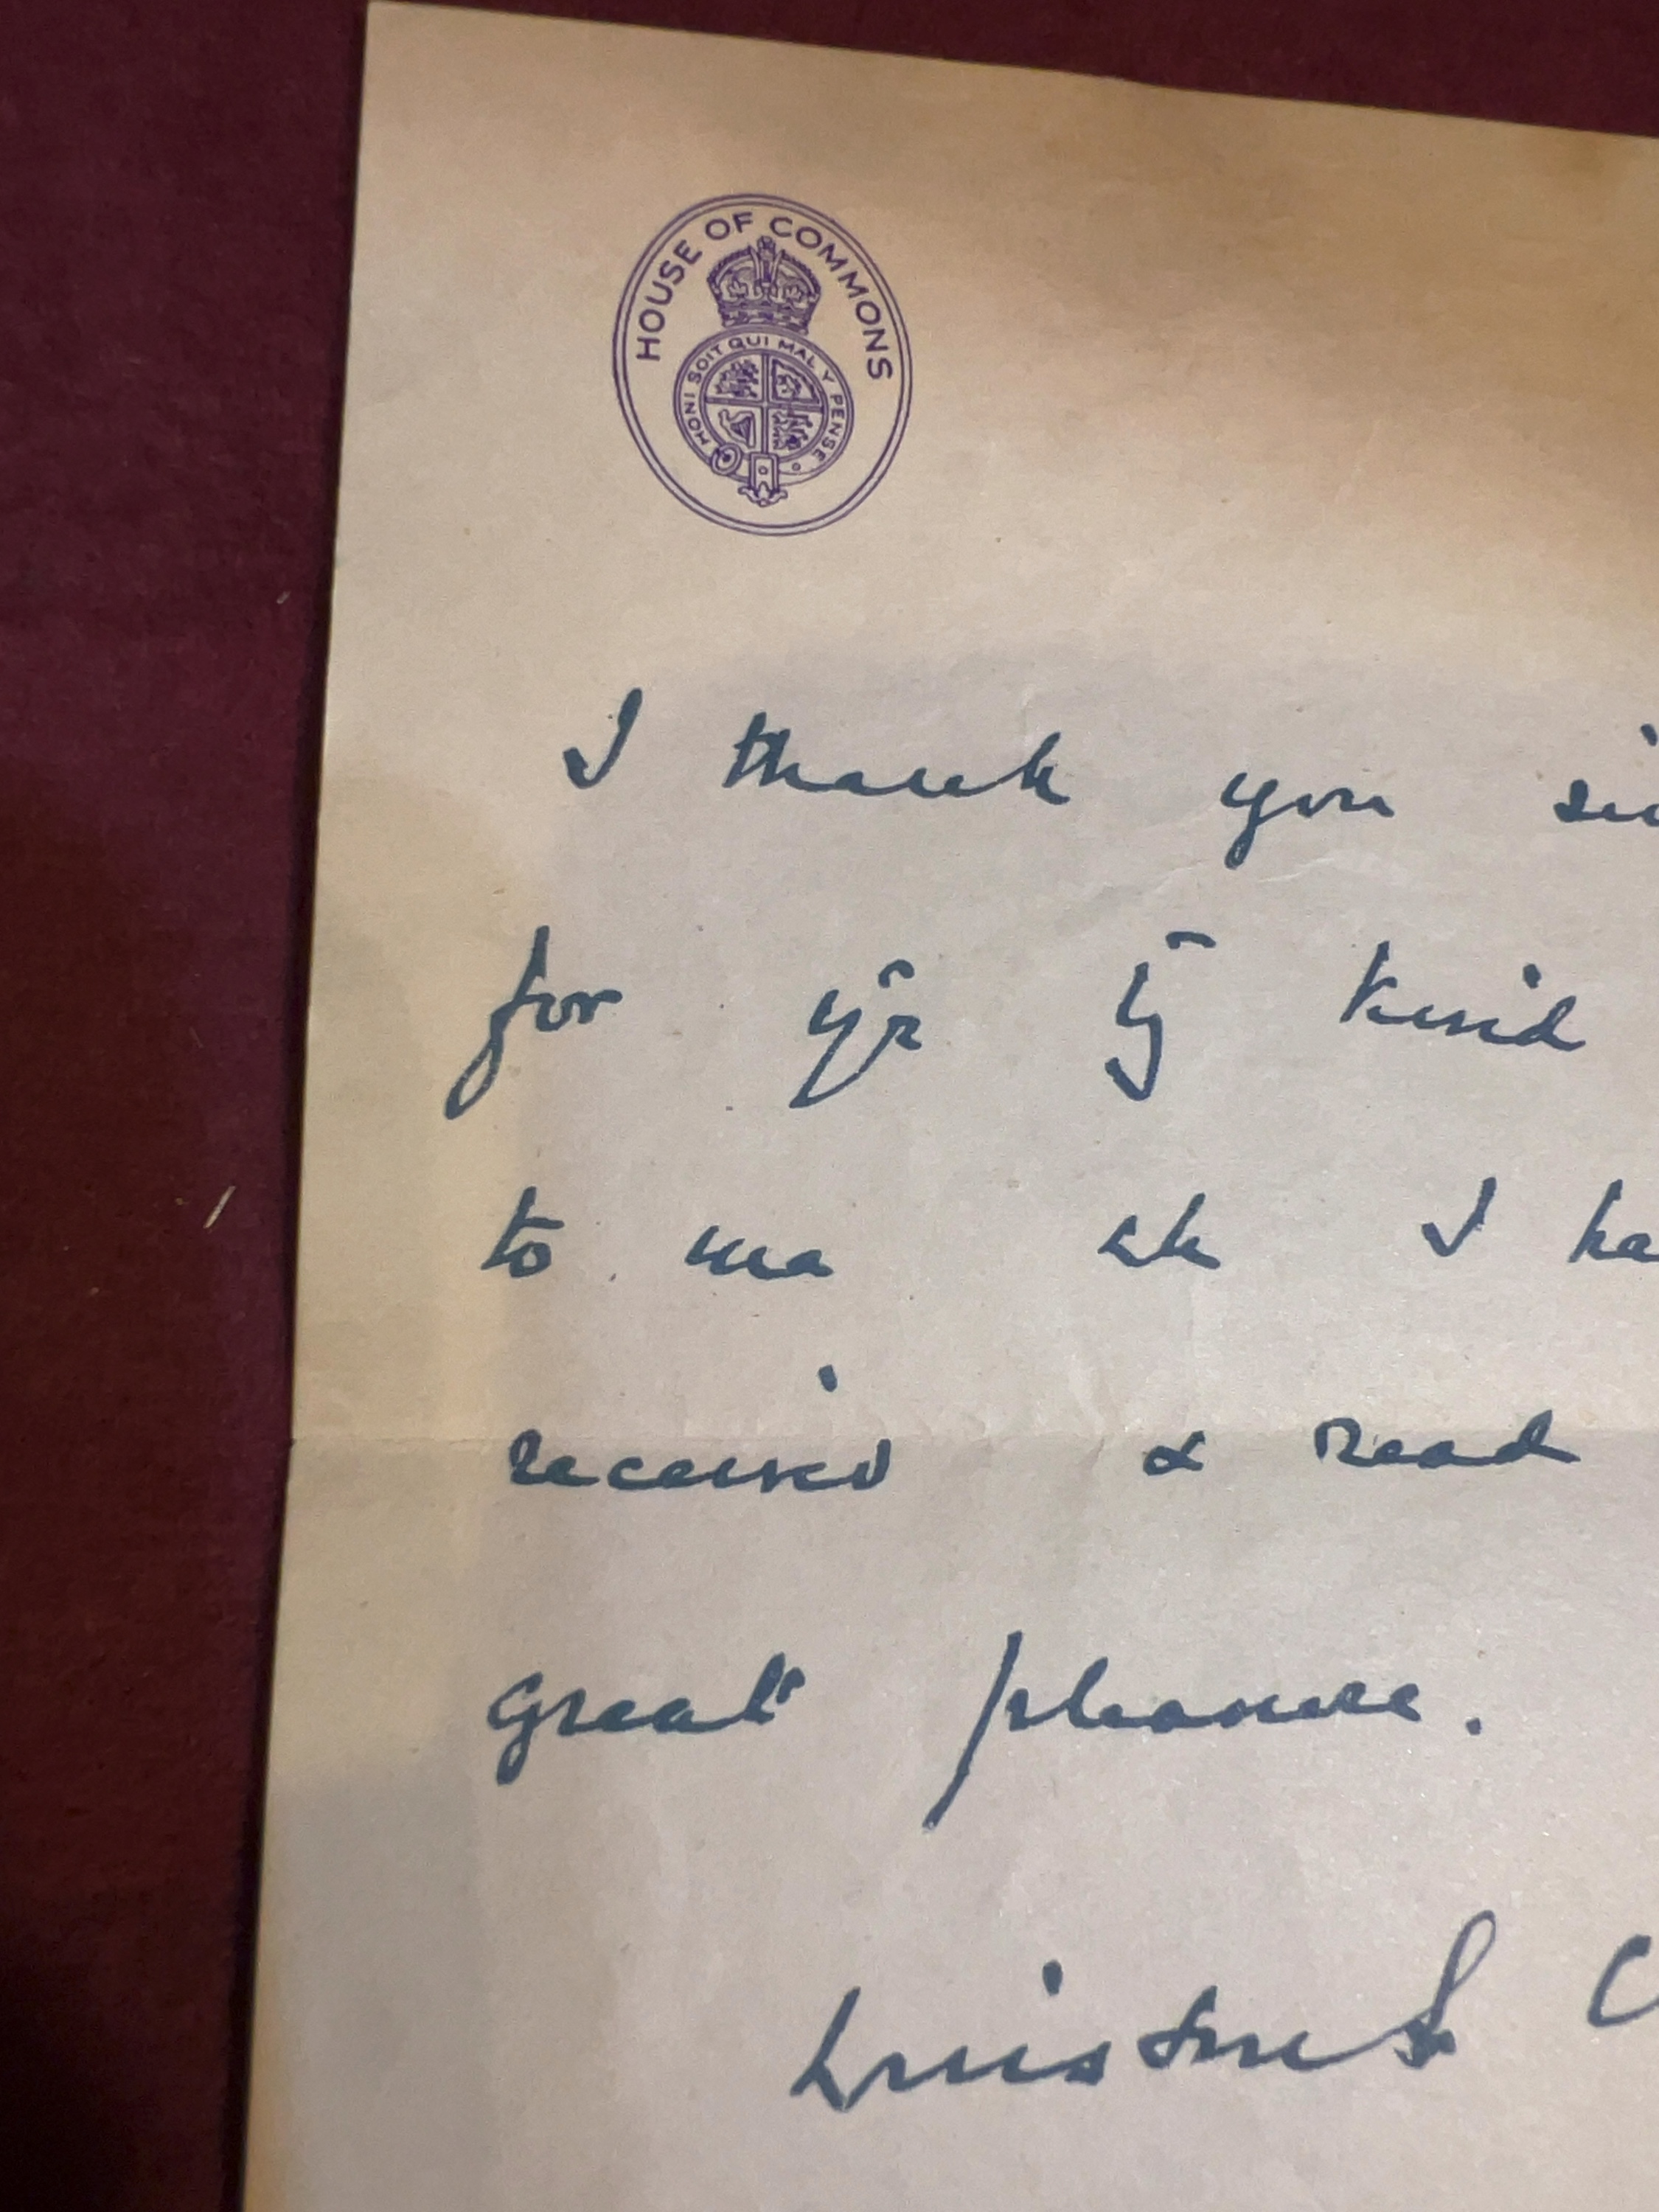 HOUSE OF COMMONS
HONI SOIT QUI MAL Y PENSE
I thank you
for yr kind
to me wh I ha
received & read
great pleasure.
Winston S. C